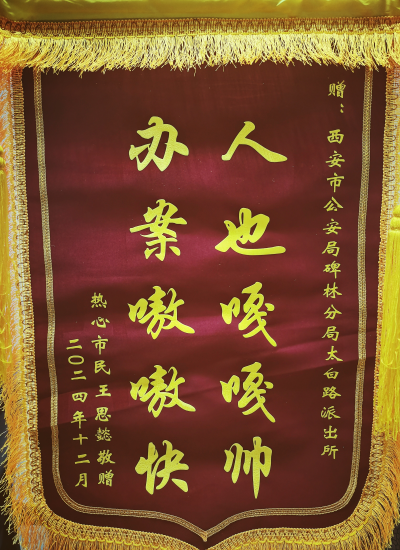 赠：西安市公安局碑林分局太白路派出所
人也嘎嘎帅
办案嗷嗷快
热心市民王思懿敬赠
二〇二四年十二月